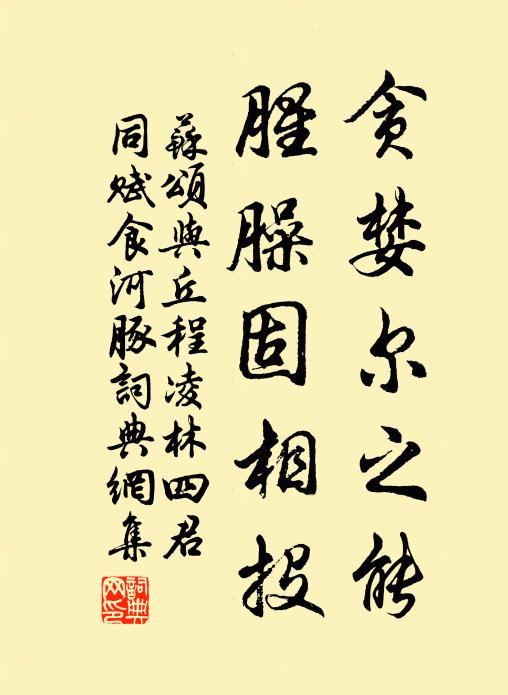 貪婪尔之能
腥臊固相投
蘇頌與丘程凌林四君
同賦食河豚詞典網集
詞典
网印